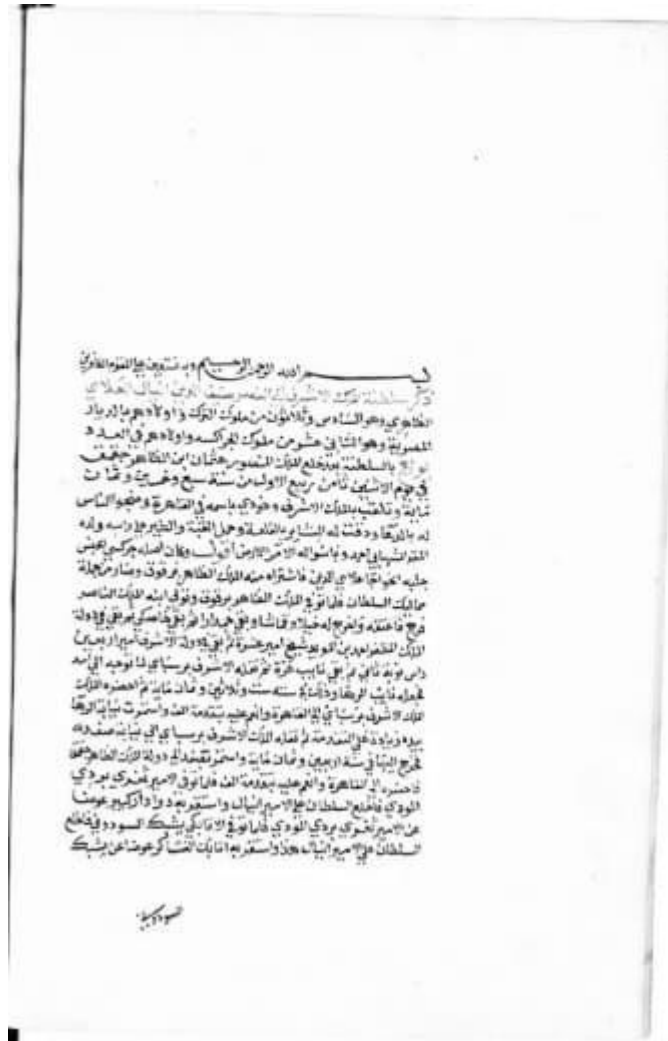 بسم الله الرحمن الرحيم وبه نستعين
ذكر سلطنة الملك الاشرف اينال العلاي
الظاهري وهو السادس وثلاثون من ملوك الترك واولادهم بالديار
المصرية وهو الثاني عشر من ملوك الجراكسة واولادهم في العدد
بالسلطنة بعد خلع الملك المنصور عثمان ابن الظاهر جقمق
في يوم الاثنين ثامن ربيع الاول من سنة سبع وخمسين وثمان
ماية وتلقب بالملك الاشرف ونودي باسمه في القاهرة وضج الناس
له بالدعا ودقت له البشاير بالقلعة وحمل القبة والطير على راسه ولده
المقر الشهابي احمد وكان اصله جركسي الجنس
جلبه الخواجا علاي الدين فاشتراه منه الملك الظاهر برقوق وصار من جملة
مماليك السلطان فلما توفي الملك الظاهر برقوق وتولى ابنه الملك الناصر
فرج فاعتقه واخرج له خيلا وقماشا وبقي جمدارا ثم بقي خاصكي ثم بقي في دولة
الملك المظفر احمد بن المويد شيخ امير عشرة ثم بقي في دولة الاشرف امير اربعين
ثم بقي نايب غزة ثم نقله الاشرف برسباي لما توجه الى امد
فجعله نايب الرها وذلك في سنة ست وثلاثين وثمان ماية ثم احضره الملك
الملك الاشرف برسباي الى القاهرة وانعم عليه بتقدمة الف واستمرت نيابة الرها
بيده زيادة على التقدمة ثم نقله الملك الاشرف برسباي الى نيابة صفد
فخرج اليها في سنة اربعين وثمان ماية واستمر بصفد الى دولة الملك الظاهر جقمق
فاحضره الى القاهرة وانعم عليه بتقدمة الف فلما توفي الامير تغري بردي
الموذي فاخلع السلطان على الامير اينال واستقر به دوادار كبير عوضا
عن الامير تغري بردي الموذي فلما توفي الاتابكي يشبك السودوني فاخلع
السلطان على الامير اينال هذا واستقر به اتابك العساكر عوضا عن يشبك